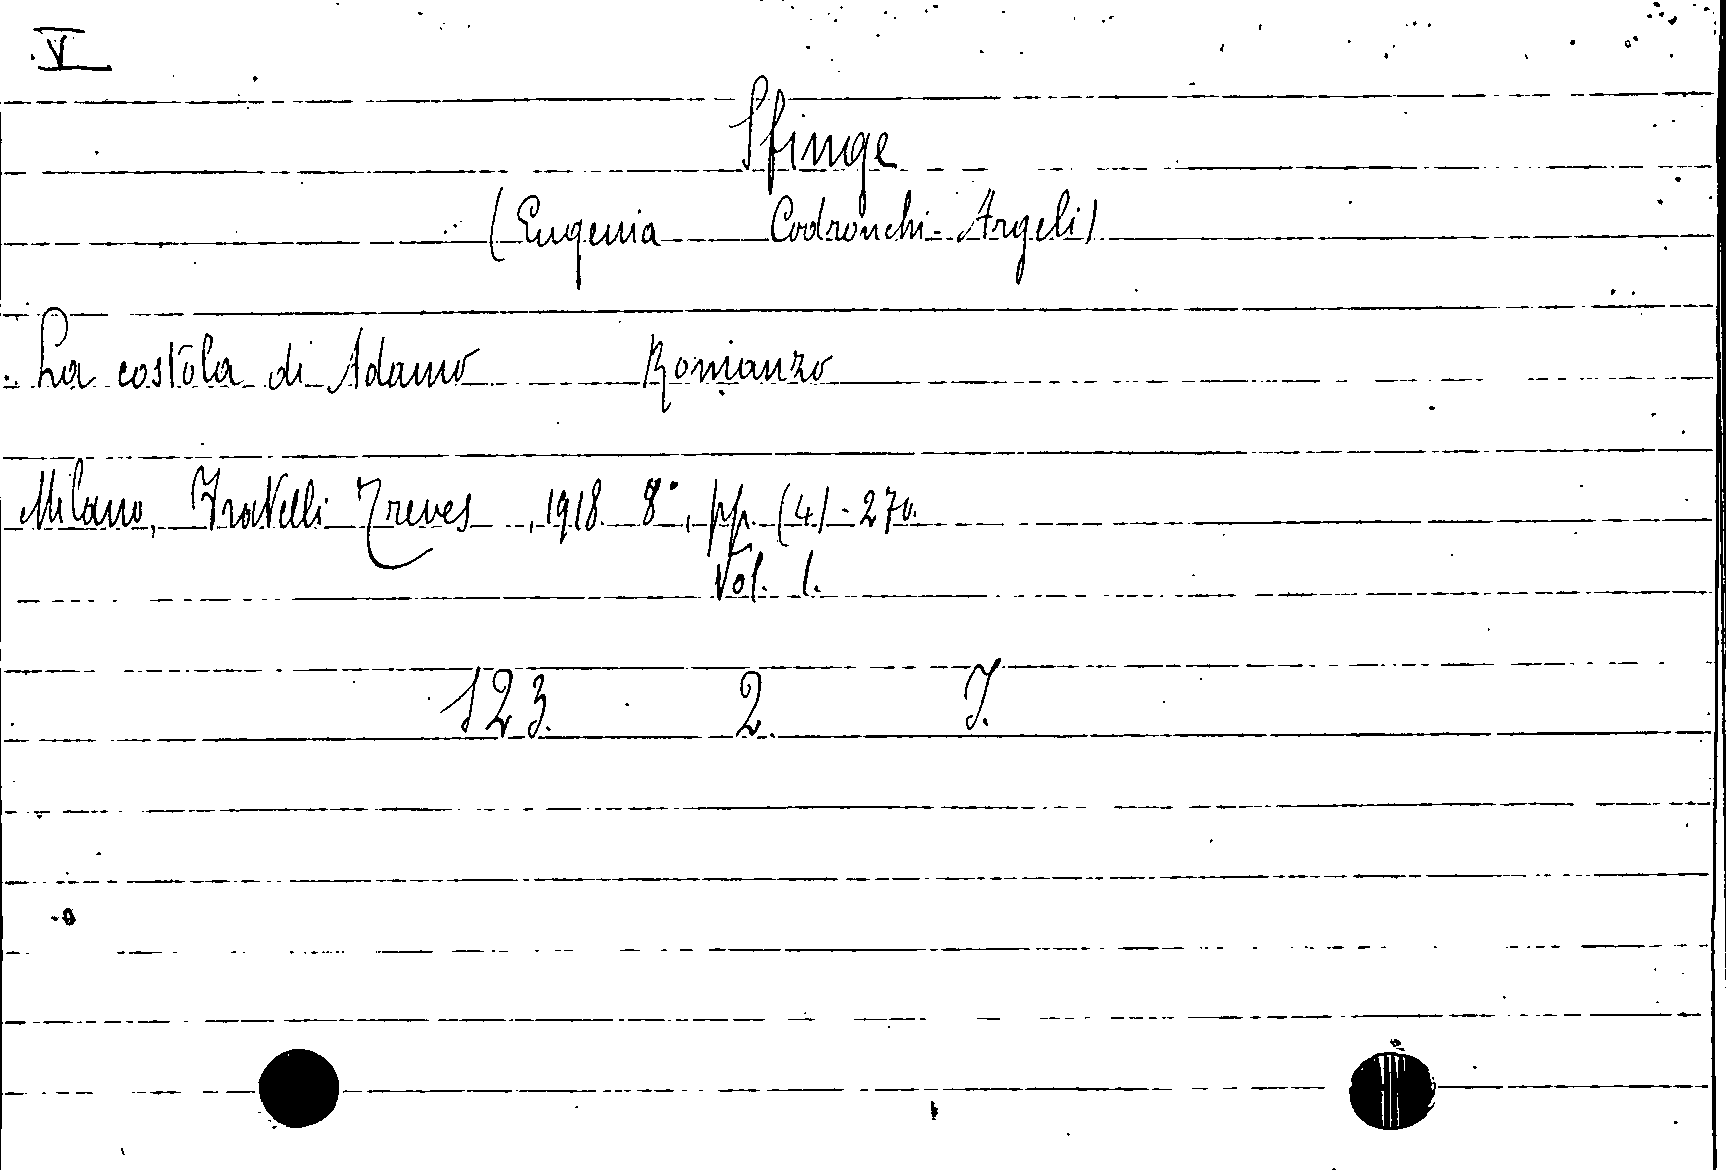 V
Sfinge
(Eugenia Codronchi-Argeli)
La costola di Adamo Romanzo
Milano, Fratelli Treves, 1918 8°, pp. (4)-270.
Vol. 1.
123. 2. I.